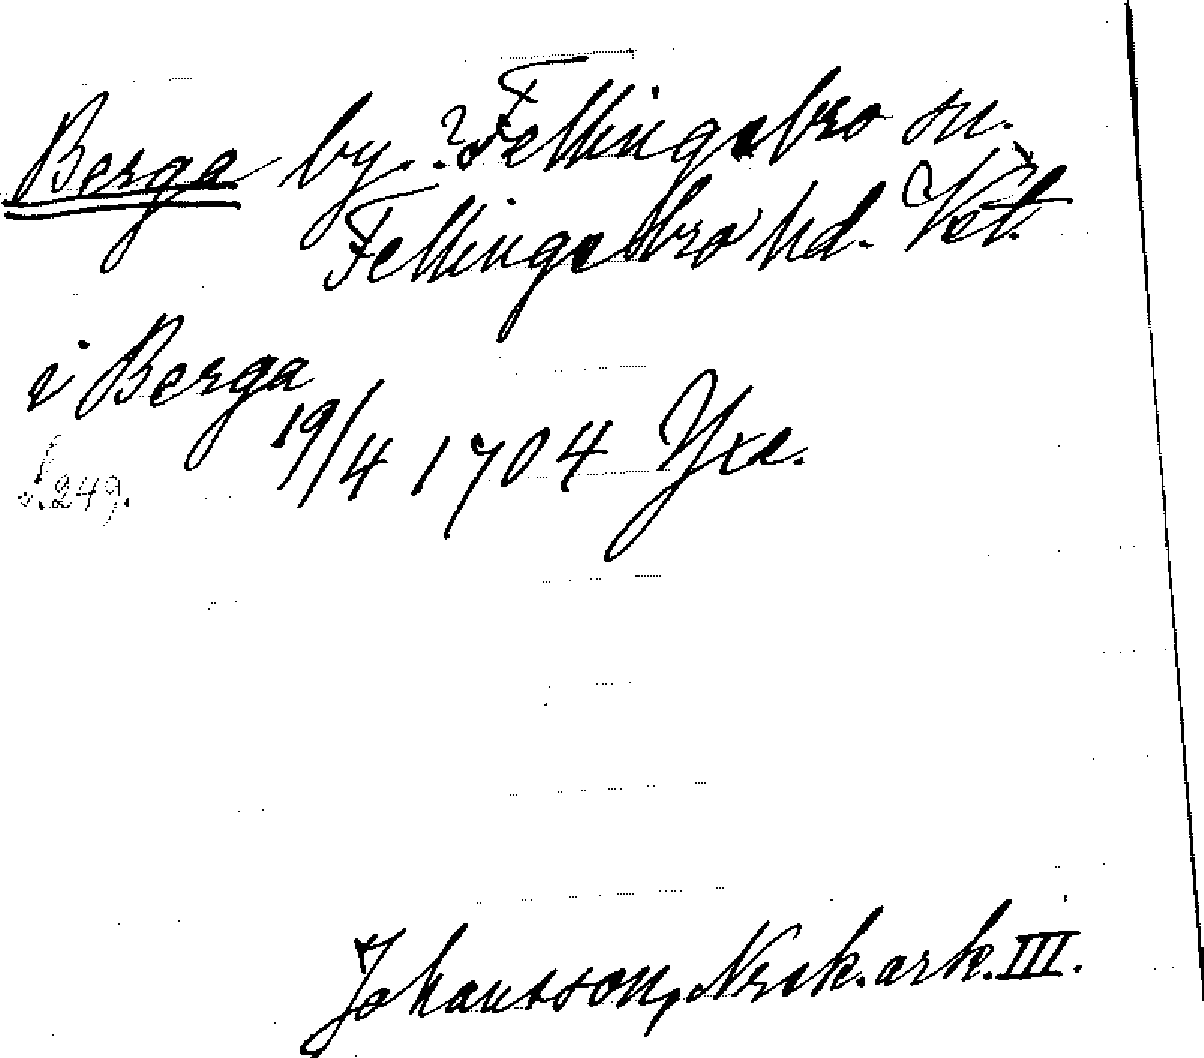 Berga by. ? Fellingsbro sn.
Fellingsbro hd. Vstm.
i Berga
19/4 1704 Yxe.
s. 249.
Johansson, Nrik. ark. III.